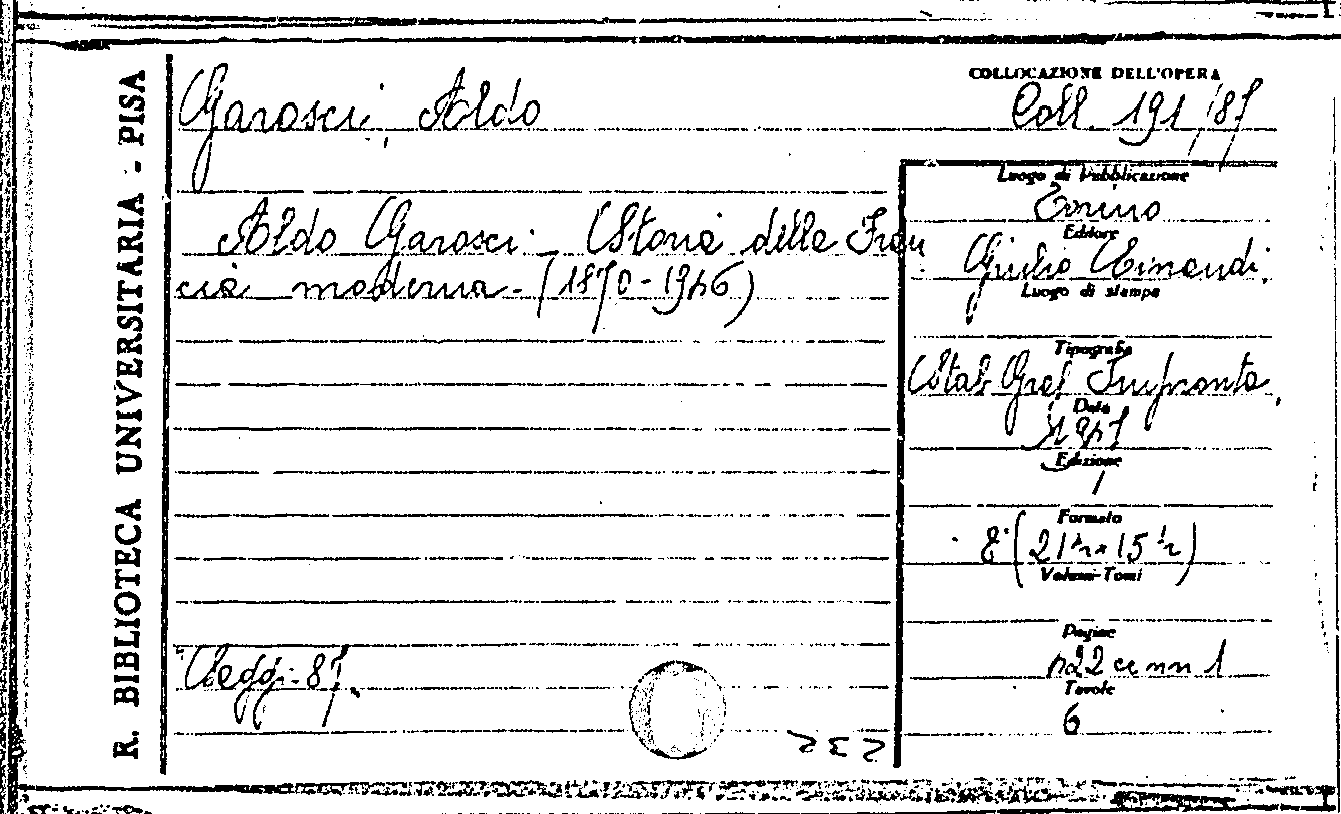 R. BIBLIOTECA UNIVERSITARIA - PISA
Garosci, Aldo
COLLOCAZIONE DELL'OPERA
Coll. 191/87
Aldo Garosci - Storia della Fran
cia moderna - (1870-1946)
Luogo di Pubblicazione
Torino
Editore
Giulio Einaudi.
Luogo di stampa
Tipografia
Stab Graf Impronta,
Data
1947
Edizione
1
Formato
8° (21 ½ x 15 ½)
Volumi-Tomi
Pagine
422 c nn 1
Tavole
6